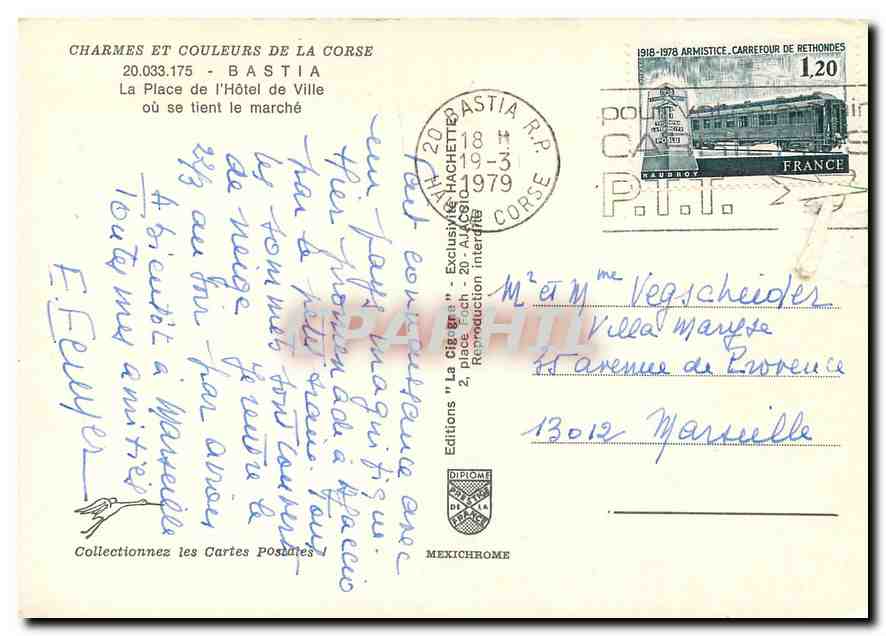 CHARMES ET COULEURS DE LA CORSE
20.033.175 - BASTIA
La Place de l'Hôtel de Ville
où se tient le marché
fait connaissance avec
un pays magnifique.
Hier promenade à Ajaccio
par le petit train. Tous
les sommets sont couverts
de neige. Je rentre le
22/3 au soir par avion
A bientôt à Marseille
Toutes mes amitiés
Collectionnez les Cartes Postales !
Editions "La Cigogne" - Exclusivité HACHETTE
2, place Foch - 20 - AJACCIO
Reproduction interdite
DIPLOME
PRESTIGE
DE LA
FRANCE
MEXICHROME
20 BASTIA R.P.
18 H
19-3
1979
HAUTE CORSE
1918-1978 ARMISTICE, CARREFOUR DE RETHONDES
1,20
HAUDROY
FRANCE
P.T.T.
Mr et Mme Vegscheider
Villa Maryse
55 avenue de Provence
13012 Marseille
CPAPHIL